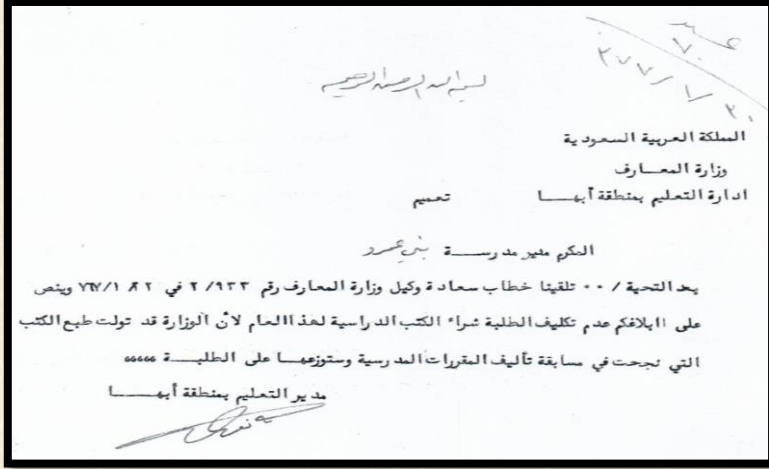 عبد
٧٠
٣٧٧/١/٣٠
بسم الله الرحمن الرحيم
المملكة العربية السعودية
وزارة المعـــارف
ادارة التعليم بمنطقة أبهـــا تعميم
المكرم مدير مدرســـة بني عمرو
بعد التحية / ٠٠ تلقينا خطاب سعادة وكيل وزارة المعارف رقم ٢/٩٣٣ في وينص
على ابلاغكم عدم تكليف الطلبة شراء الكتب الدراسية لهذا العام لأن الوزارة قد تولت طبع الكتب
التي نجحت في مسابقة تأليف المقررات المدرسية وستوزعهـــا على الطلبـــة ٥٥٥٥٥
مدير التعليم بمنطقة أبهـــا